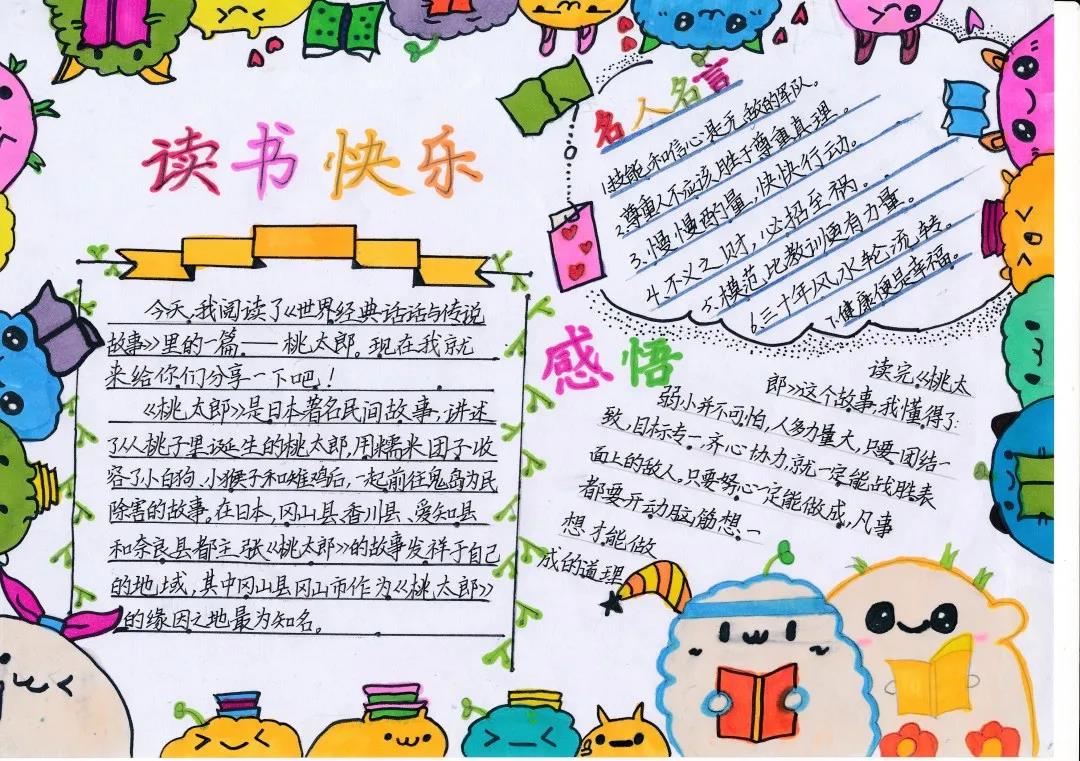 读书快乐
今天,我阅读了《世界经典话话与传说
故事》里的一篇——桃太郎。现在我就
来给你们分享一下吧!
《桃太郎》是日本著名民间故事,讲述
了从桃子里诞生的桃太郎,用糯米团子收
容了小白狗、小猴子和雉鸡后,一起前往鬼岛为民
除害的故事。在日本,冈山县、香川县、爱知县
和奈良县都主张《桃太郎》的故事发祥于自己
的地域,其中冈山县冈山市作为《桃太郎》
的缘因之地最为知名。
名人名言
1.技能和信心是无敌的军队。
2.尊重人不应该胜于尊重真理。
3.慢慢酌量,快快行动。
4.不义之财,必招至祸。
5.模范比教训更有力量。
6.三十年风水轮流转。
7.健康便是幸福。
感悟
读完《桃太
郎》这个故事,我懂得了:
弱小并不可怕,人多力量大,只要团结一
致,目标专一,齐心协力,就一定能战胜表
面上的敌人。只要好心一定能做成,凡事
都要开动脑筋想一
想才能做
成的道理